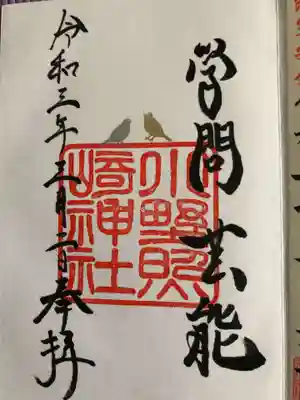 学問芸能
小野照
崎神社
令和三年三月二日奉拝